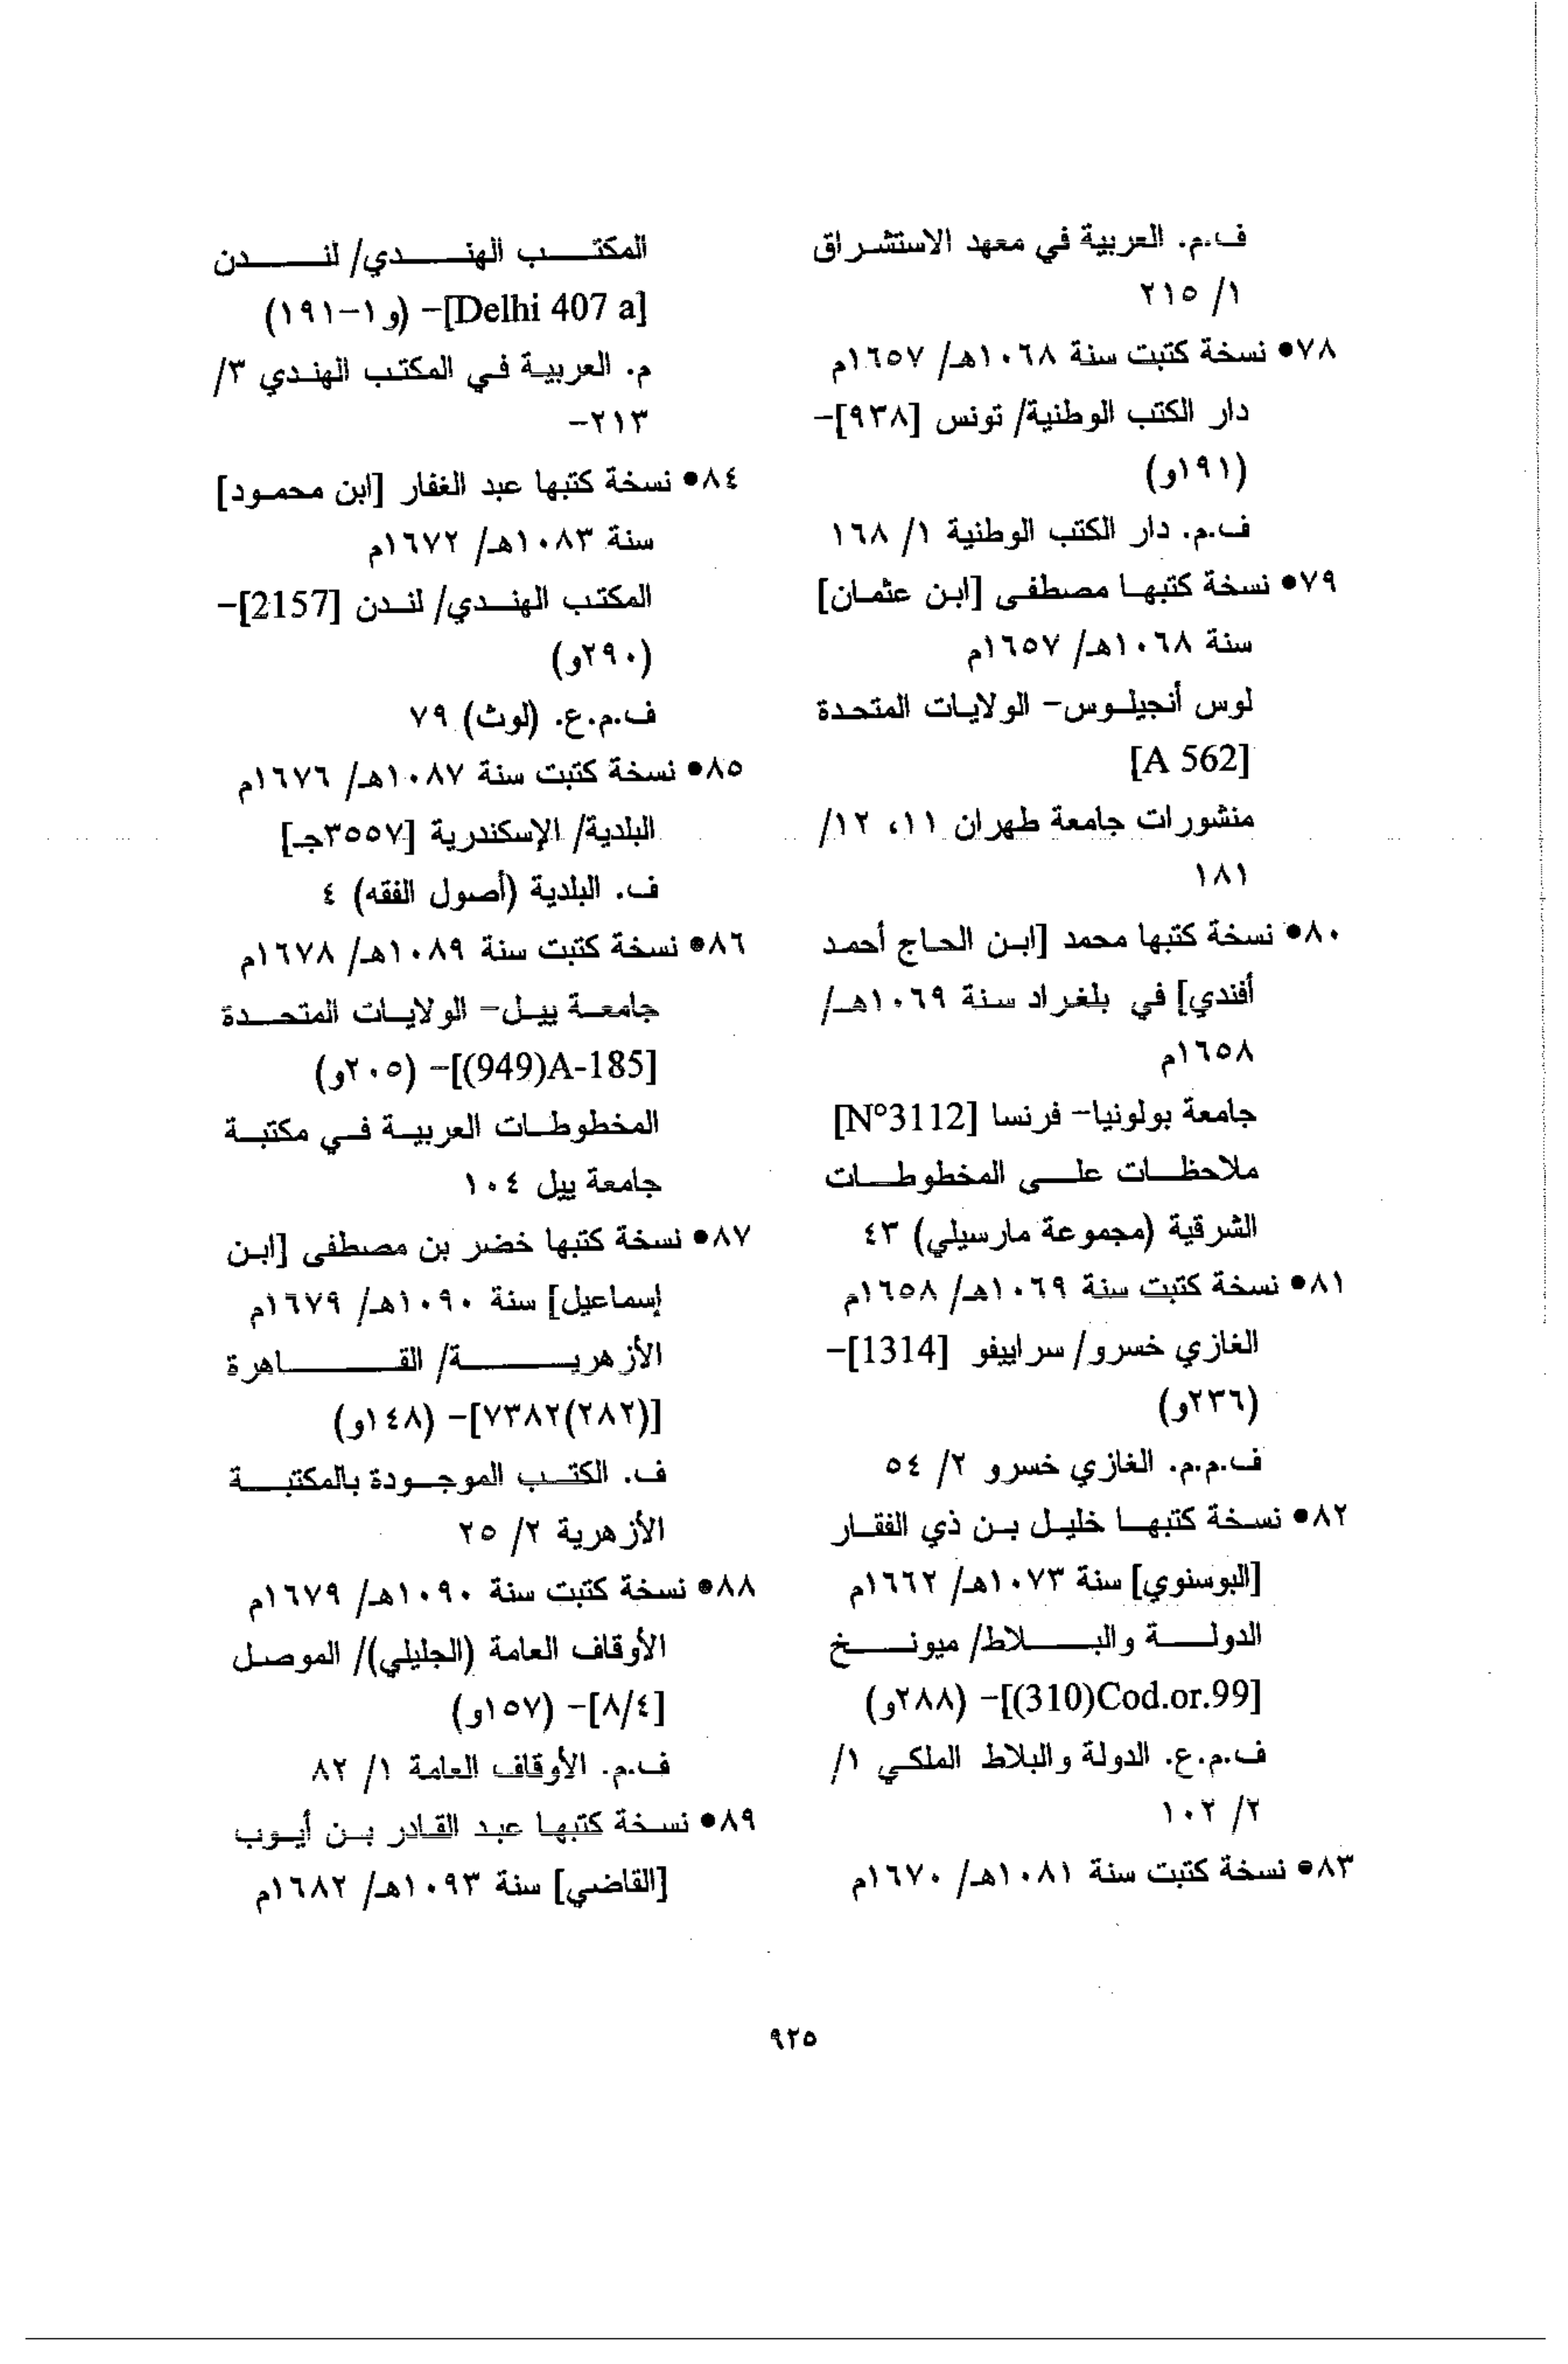 ف.م. العربية في معهد الاستشراق
١/ ٢١٥
٧٨● نسخة كتبت سنة ١٠٦٨هـ/ ١٦٥٧م
دار الكتب الوطنية/ تونس [٩٣٨]-
(١٩١و)
ف.م. دار الكتب الوطنية ١/ ١٦٨
٧٩● نسخة كتبها مصطفى [ابن عثمان]
سنة ١٠٦٨هـ/ ١٦٥٧م
لوس أنجيلوس- الولايات المتحدة
[A 562]
منشورات جامعة طهران ١١، ١٢/
١٨١
٨٠● نسخة كتبها محمد [ابن الحاج أحمد
أفندي] في بلغراد سنة ١٠٦٩هـ/
١٦٥٨م
جامعة بولونيا- فرنسا [N°3112]
ملاحظات على المخطوطات
الشرقية (مجموعة مارسيلي) ٤٣
٨١● نسخة كتبت سنة ١٠٦٩هـ/ ١٦٥٨م
الغازي خسرو/ سراييفو [1314]-
(٢٣٦و)
ف.م.م. الغازي خسرو ٢/ ٥٤
٨٢● نسخة كتبها خليل بن ذي الفقار
[البوسنوي] سنة ١٠٧٣هـ/ ١٦٦٢م
الدولة والبلاط/ ميونخ
[Cod.or.99(310)]- (٢٨٨و)
ف.م.ع. الدولة والبلاط الملكي ١/
٢/ ١٠٢
٨٣● نسخة كتبت سنة ١٠٨١هـ/ ١٦٧٠م
المكتب الهندي/ لندن
[Delhi 407 a]- (و١-١٩١)
م. العربية في المكتب الهندي ٣/
٢١٣-
٨٤● نسخة كتبها عبد الغفار [ابن محمود]
سنة ١٠٨٣هـ/ ١٦٧٢م
المكتب الهندي/ لندن [2157]-
(٢٩٠و)
ف.م.ع. (لوث) ٧٩
٨٥● نسخة كتبت سنة ١٠٨٧هـ/ ١٦٧٦م
البلدية/ الإسكندرية [٣٥٥٧جـ]
ف. البلدية (أصول الفقه) ٤
٨٦● نسخة كتبت سنة ١٠٨٩هـ/ ١٦٧٨م
جامعة ييل- الولايات المتحدة
[A-185(949)]- (٢٠٥و)
المخطوطات العربية في مكتبة
جامعة ييل ١٠٤
٨٧● نسخة كتبها خضر بن مصطفى [ابن
إسماعيل] سنة ١٠٩٠هـ/ ١٦٧٩م
الأزهرية/ القاهرة
[(٢٨٢)٧٣٨٢]- (١٤٨و)
ف. الكتب الموجودة بالمكتبة
الأزهرية ٢/ ٢٥
٨٨● نسخة كتبت سنة ١٠٩٠هـ/ ١٦٧٩م
الأوقاف العامة (الجليلي)/ الموصل
[٨/٤]- (١٥٧و)
ف.م. الأوقاف العامة ١/ ٨٢
٨٩● نسخة كتبها عبد القادر بن أيوب
[القاضي] سنة ١٠٩٣هـ/ ١٦٨٢م
٩٢٥